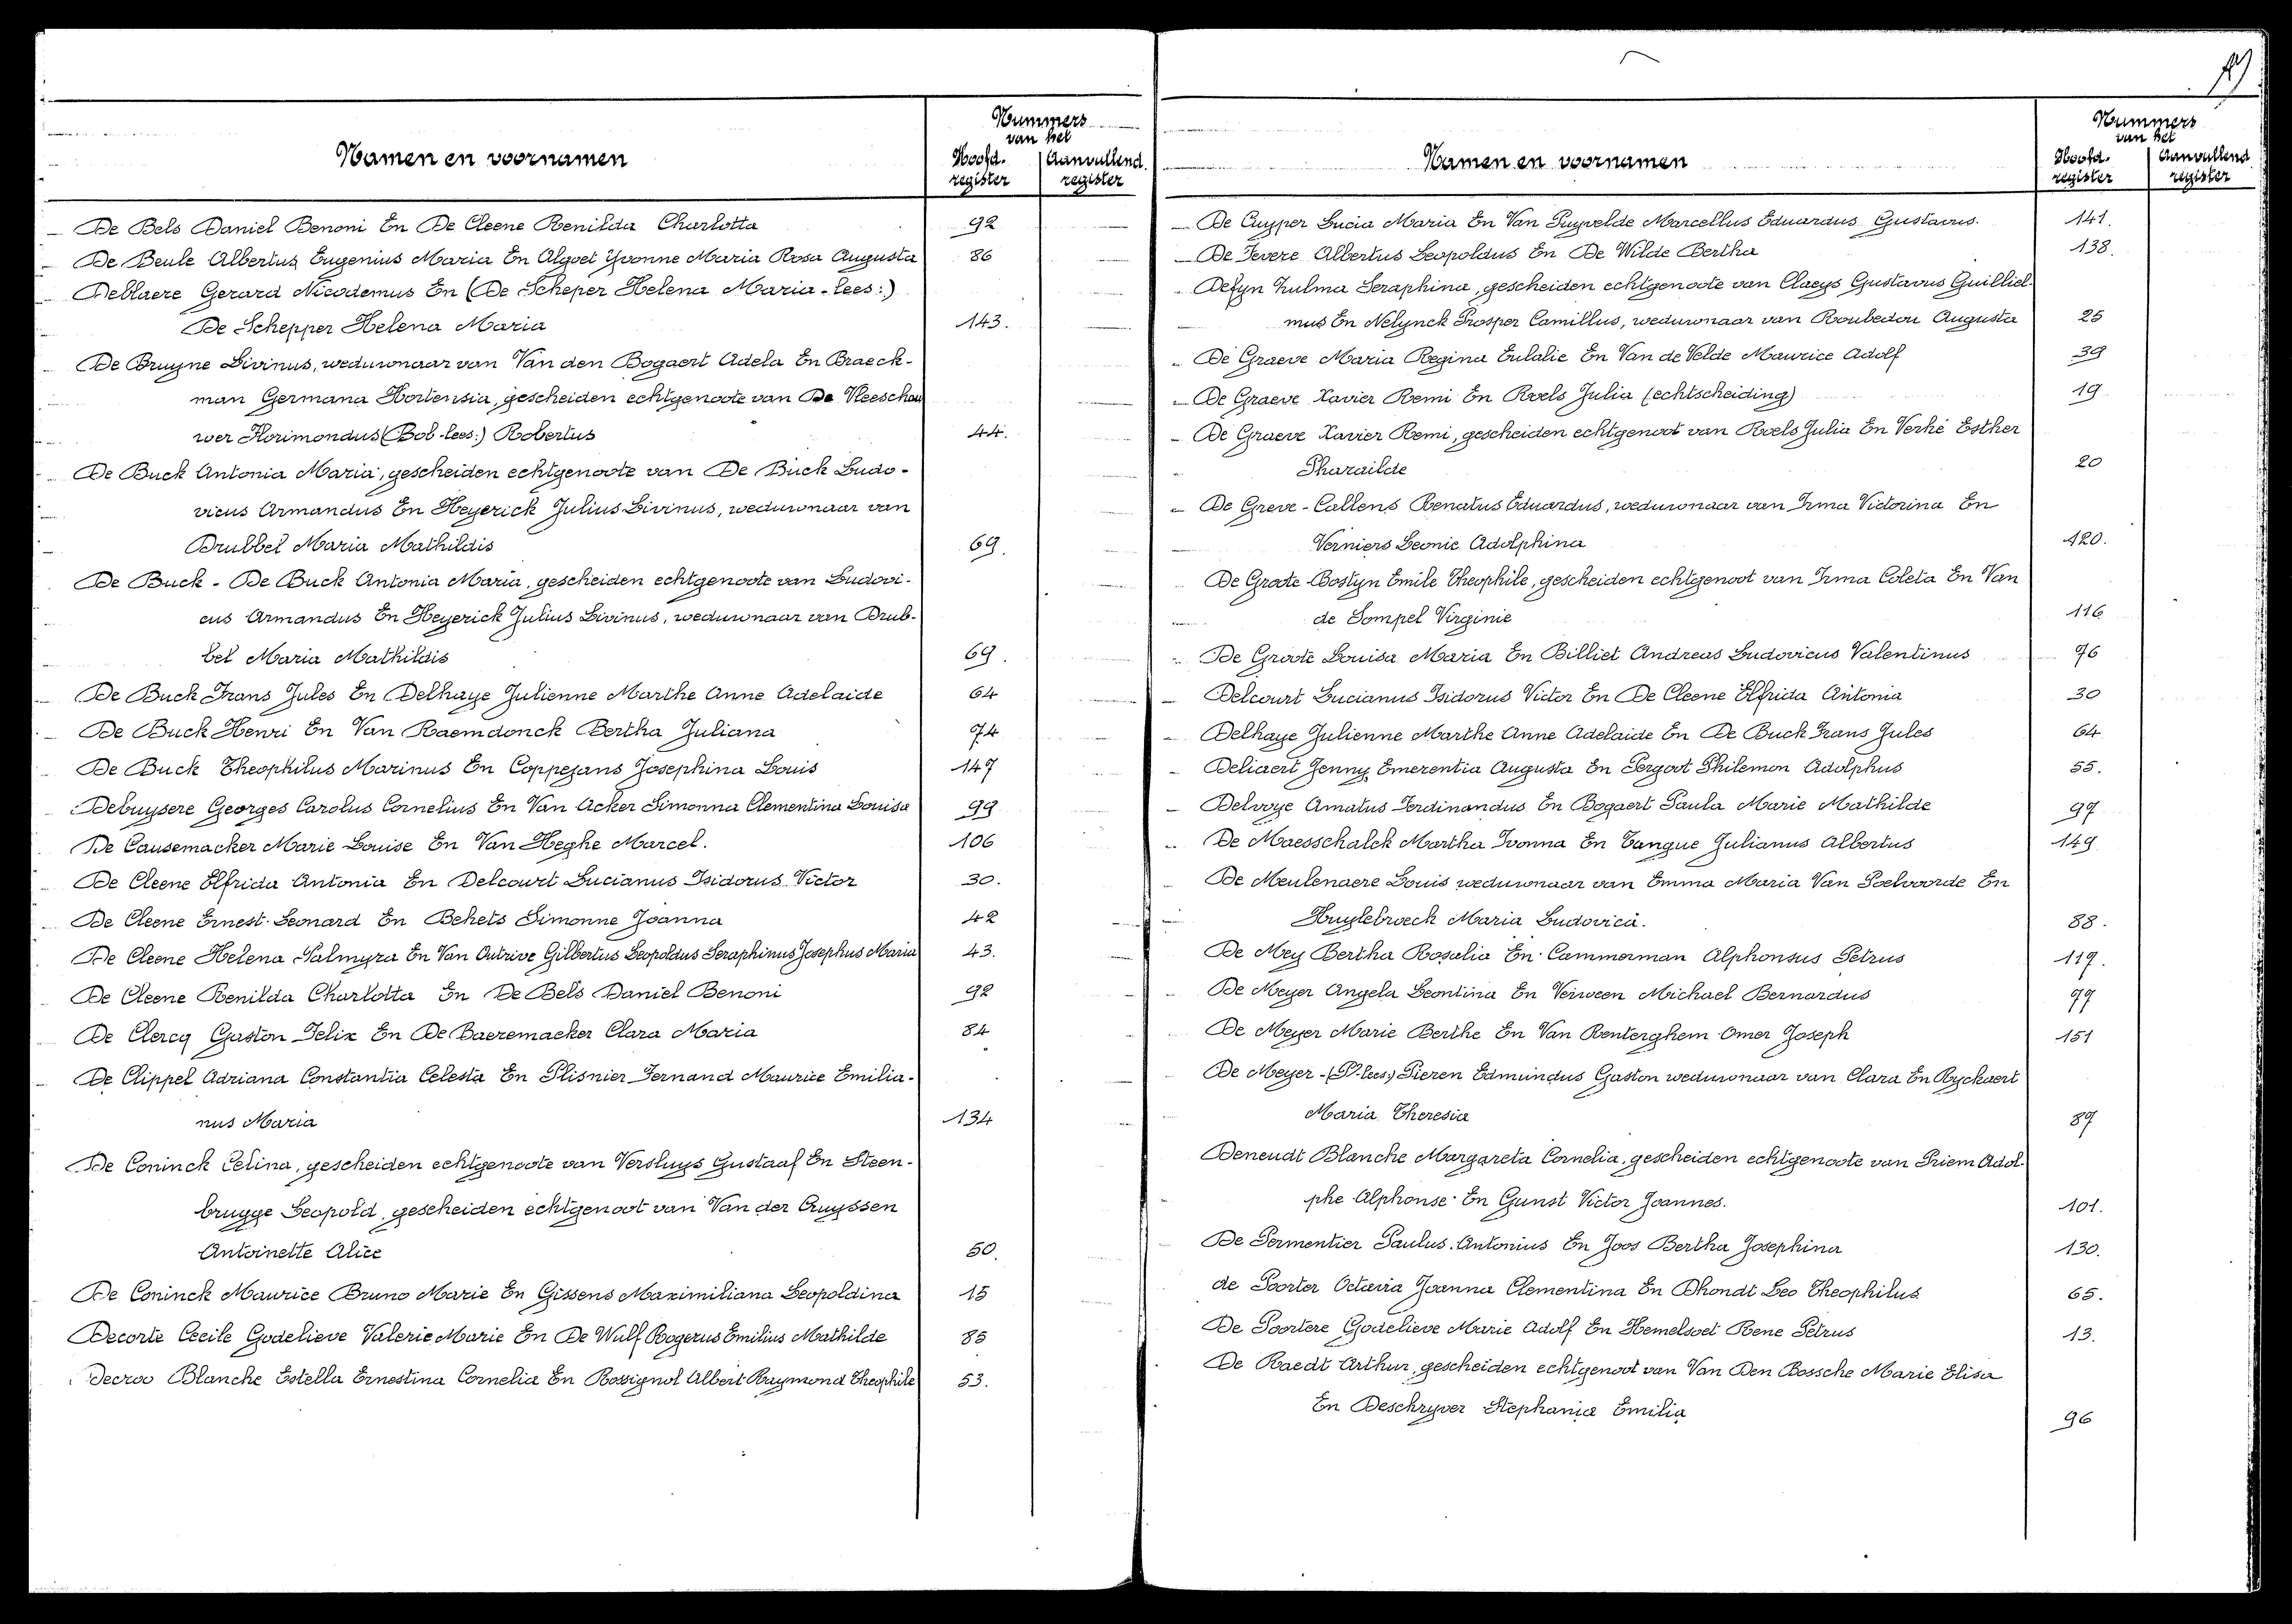 Nummers
van het
Namen en voornamen
Hoofd-
register
Aanvullend.
register
De Bels Daniel Benoni En De Cleene Renilda Charlotta 92
De Beule Albertus Eugenius Maria En Algoet Yvonne Maria Rosa Augusta 86
Deblaere Gerard Nicodemus En (De Scheper Helena Maria - lees:)
De Schepper Helena Maria 143.
De Bruyne Livinus, weduwnaar van Van den Bogaert Adela En Braeck-
man Germana Hortensia, gescheiden echtgenoote van De Vleeschou
wer Florimondus (Bob-lees:) Robertus 44.
De Buck Antonia Maria, gescheiden echtgenoote van De Buck Ludo-
vicus Armandus En Heyerick Julius Livinus, weduwnaar van
Brubbel Maria Mathildis 69.
De Buck - De Buck Antonia Maria, gescheiden echtgenoote van Ludovi-
cus Armandus En Heyerick Julius Livinus, weduwnaar van Brub-
bel Maria Mathildis 69.
De Buck Frans Jules En Delhaye Julienne Marthe Anne Adelaide 64
De Buck Henri En Van Raemdonck Bertha Juliana 74
De Buck Theophilus Marinus En Coppejans Josephina Louis 147
Debuysere Georges Carolus Cornelius En Van Acker Simonna Clementina Louisa 99
De Causemacker Marie Louise En Van Heghe Marcel. 106
De Cleene Elfrida Antonia En Delcourt Lucianus Isidorus Victor 30.
De Cleene Ernest Leonard En Behets Simonne Joanna 42
De Cleene Helena Palmyra En Van Outrive Gilbertus Leopoldus Seraphinus Josephus Maria 43.
De Cleene Renilda Charlotta En De Bels Daniel Benoni 92
De Clercq Gaston Felix En De Baeremaeker Clara Maria 84
De Clippel Adriana Constantia Celesta En Plisnier Fernand Maurice Emilia-
nus Maria 134
De Coninck Celina, gescheiden echtgenoote van Versluys Gustaaf En Steen-
brugge Leopold, gescheiden echtgenoot van Van der Cruyssen
Antoinette Alice 50.
De Coninck Maurice Bruno Marie En Gissens Maximiliana Leopoldina 15
Decorte Cecile Godelieve Valerie Marie En De Wulf Rogerus Emilius Mathilde 85
Decroo Blanche Estella Ernestina Cornelia En Rossignol Albert Raymond Theophile 53.
Nummers
van het
Namen en voornamen
Hoofd-
register
Aanvullend
register
De Cuyper Lucia Maria En Van Puyvelde Marcellus Eduardus Gustavus. 141.
De Fevere Albertus Leopoldus En De Wilde Bertha 138.
Defyn Zulma Seraphina, gescheiden echtgenoote van Claeys Gustavus Guilliel-
mus En Nelynck Prosper Camillus, weduwnaar van Roubedou Augusta 25
De Graeve Maria Regina Eulalie En Van de Velde Maurice Adolf 39
De Graeve Xavier Remi En Roels Julia (echtscheiding) 19
De Graeve Xavier Remi, gescheiden echtgenoot van Roels Julia En Verhé Esther
Pharailde 20
De Greve - Callens Renatus Eduardus, weduwnaar van Irma Victorina En
Verniers Leonie Adolphina 120.
De Groote - Bostyn Emile Theophile, gescheiden echtgenoot van Irma Coleta En Van
de Sompel Virginie 116
De Groote Louisa Maria En Billiet Andreas Ludovicus Valentinus 76
Delcourt Lucianus Isidorus Victor En De Cleene Elfrida Antonia 30
Delhaye Julienne Marthe Anne Adelaide En De Buck Frans Jules 64
Deliaert Jenny Emerentia Augusta En Pergoot Philemon Adolphus 55.
Delvoye Amatus Ferdinandus En Bogaert Paula Marie Mathilde 97
De Maesschalck Martha Ivonna En Tanque Julianus Albertus 149
De Meulenaere Louis weduwnaar van Emma Maria Van Poelvoorde En
Huylebroeck Maria Ludovica. 88.
De Mey Bertha Rosalia En Cammerman Alphonsus Petrus 117.
De Meyer Angela Leontina En Verween Michael Bernardus 77
De Meyer Marie Berthe En Van Renterghem Omer Joseph 151
De Meyer - (P-lees:) Pieren Edmundus Gaston weduwnaar van Clara En Ryckaert
Maria Theresia 87
Deneudt Blanche Margareta Cornelia, gescheiden echtgenoote van Priem Adol-
phe Alphonse En Gunst Victor Joannes. 101.
De Permentier Paulus Antonius En Joos Bertha Josephina 130.
de Poorter Octavia Joanna Clementina En Dhondt Leo Theophilus 65.
De Poortere Godelieve Marie Adolf En Hemelsoet Rene Petrus 13.
De Raedt Arthur, gescheiden echtgenoot van Van Den Bossche Marie Elisa
En Deschryver Stephania Emilia 96